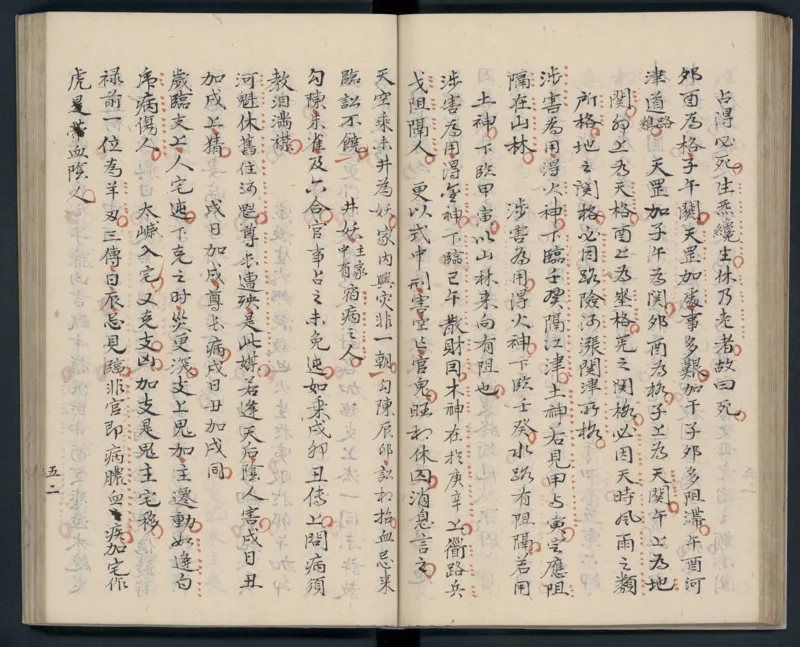 占得必死生炁纔生休乃老者故曰死
卯酉為格子午関天罡加處事多艱加干子卯多阻滯午酉河
津道路難　天罡加子午為関卯酉為格子上為天関午上為地
関卯上為天格酉上為峯格死之関格必因天時風雨之類
所格地之関格必因路險河漲関津所格
涉害為用得火神下臨壬癸隔江津土神若見甲与寅定應阻
隔在山林　涉害為用得火神下臨壬癸水路有阻隔若用
土神下臨甲寅以山林来向有阻也
涉害為用得金神下臨巳午散財因木神在於庚辛上衢路兵
戈阻隔人　更以式中刑害空亡官鬼旺相休囚消息言之
天空乗未井為妖家内興灾非一朝勾陳辰卯訟相招血忌来
臨訟不饒　井妖主家中有宿病之人
勾陳朱雀及六合官事占之未免迍如乗戌卯丑傳上問病須
教泪滿襟
河魁休舊住河魁尊長遭殃是此媒若逢天后陰人害戌日丑
加戌上猜　戌日加戌尊長病戌日丑加戌同
歲臨支上人宅迍下克之時災更深支上鬼加主遷動如逢白
虎病傷人　太歲入宅又克支凶加支是鬼主宅移
禄前一位為羊刃三傳日辰忌見臨非官即病膿血疾加宅作
虎是帶血陰人
五二